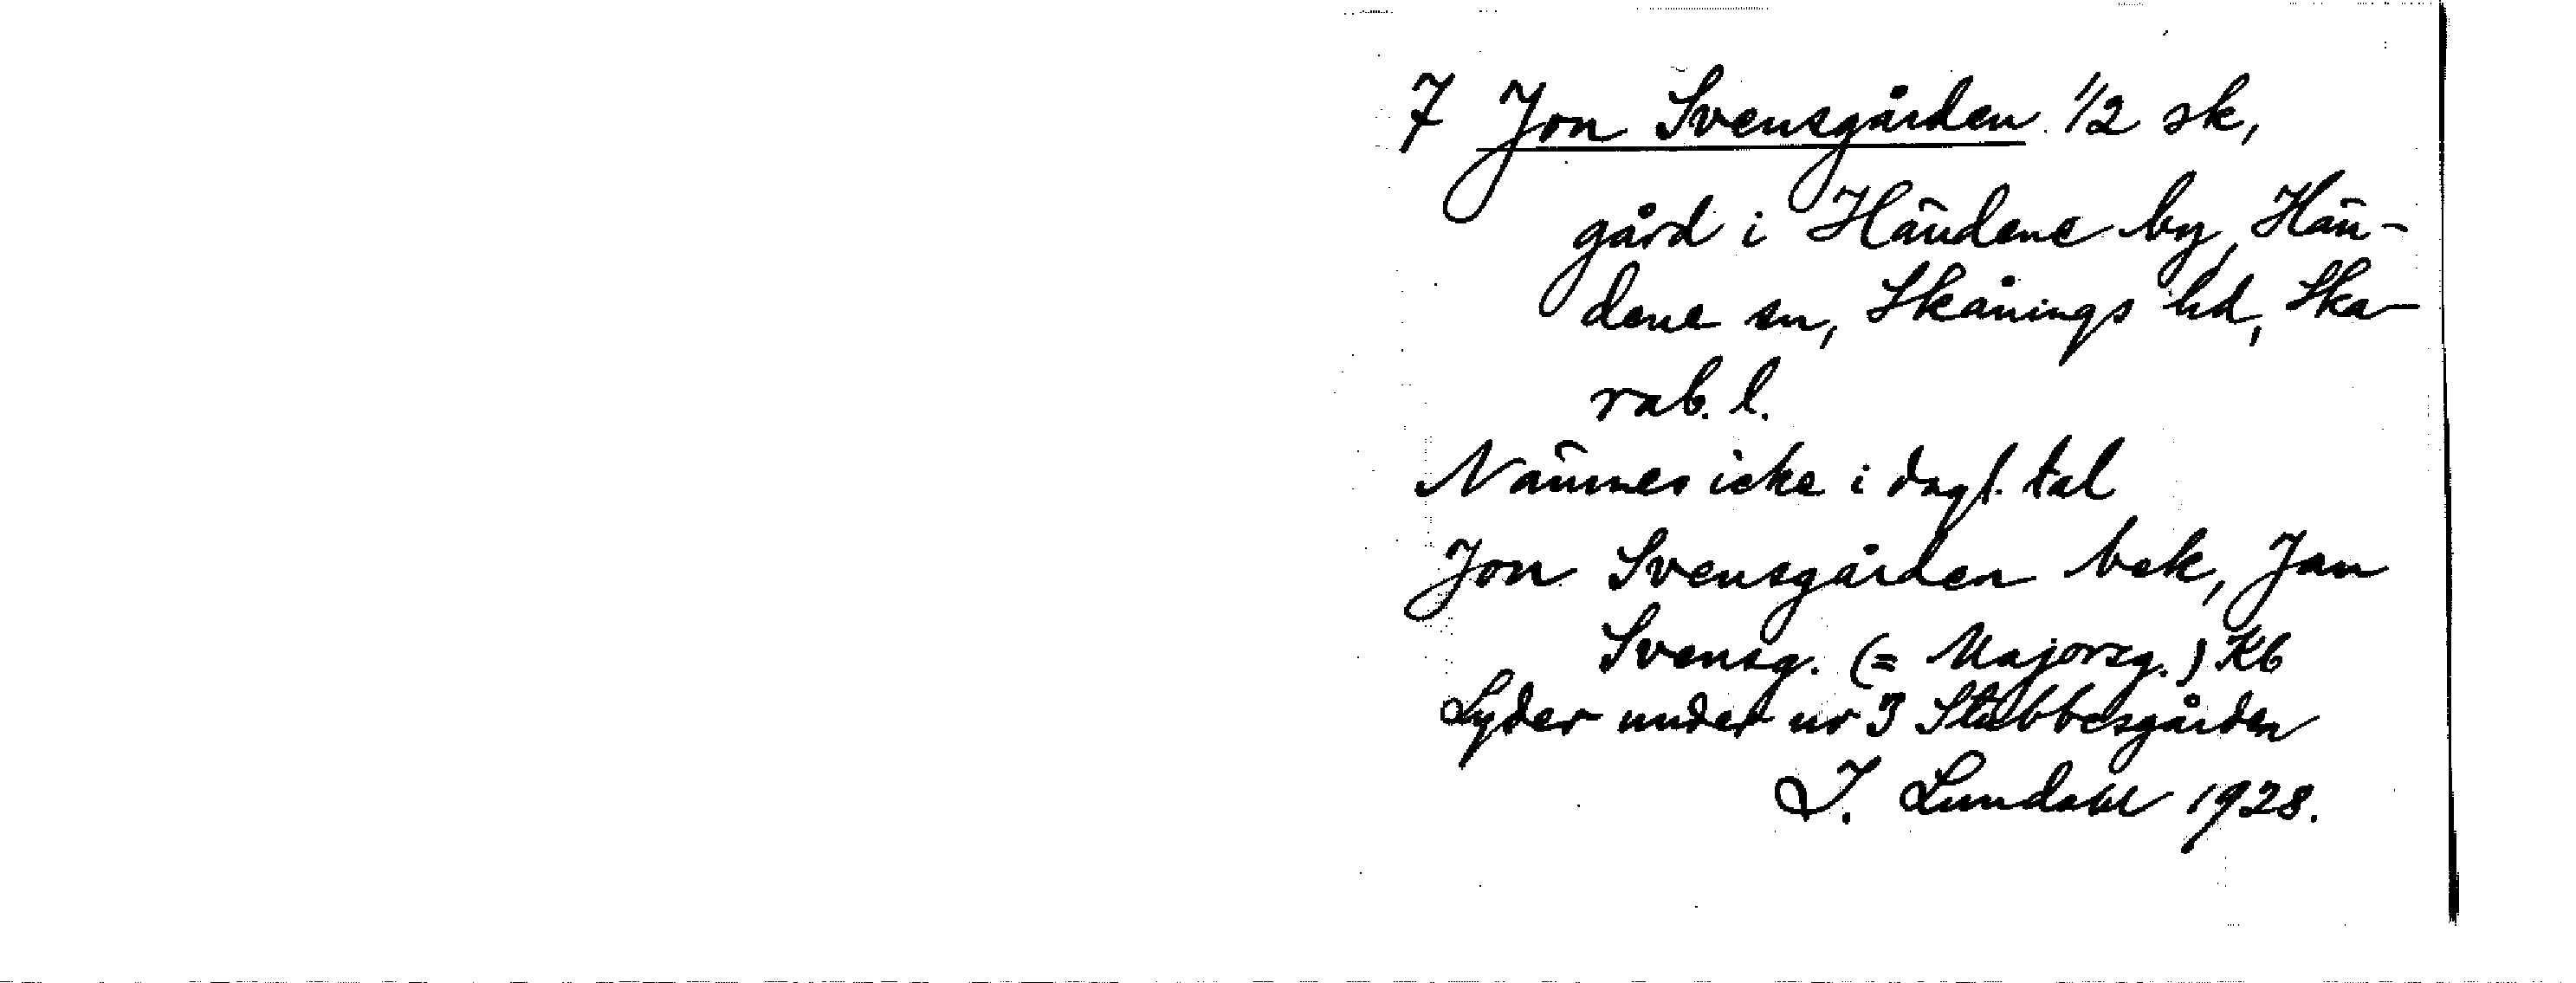 7 Jon Svensgården 1/2 sk,
gård i Händene by, Hän-
dene sn, Skånings hd, Ska-
rab. l.
Nämnes icke i dagl. tal
Jon Svensgården bek, Jan
Svensg. (= Majorsg.) Kb
Lyder under nr 3 Stubbesgården
I. Lundahl 1928.